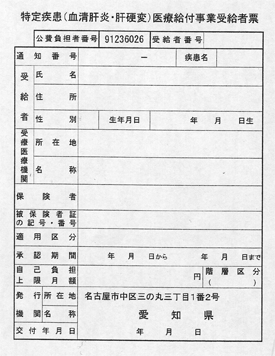 特定疾患（血清肝炎・肝硬変）医療給付事業受給者票
公費負担者番号 91236026 受給者番号
通知番号 － 疾患名
受給者 氏名
住所
性別 生年月日 年 月 日生
受療医療機関 所在地
名称
保険者
被保険者証の記号・番号
適用区分
承認期間 年 月 日から 年 月 日まで
自己負担上限月額 円 階層区分（ ）
発行機関 所在地 名古屋市中区三の丸三丁目1番2号
名称 愛知県
交付年月日 年 月 日